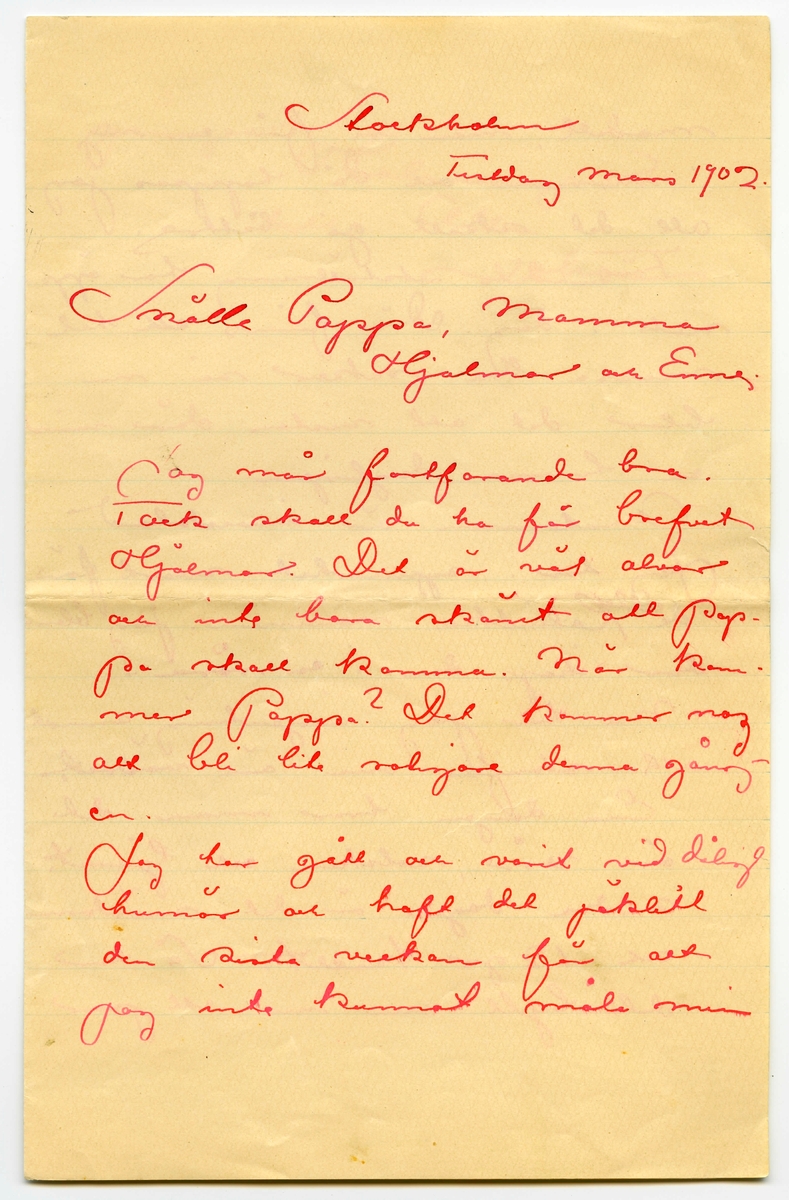 Stockholm
Tisdag mars 1902.
Snälle Pappa, Mamma
Hjalmar och Ernes.
Jag mår fortfarande bra.
Tack skall du ha för brefvet
Hjalmar. Det är väl alvar
och inte bara skämt att Pap-
pa skall komma. När kom-
mer Pappa? Det kommer nog
att bli lite roligare denna gång
en.
Jag har gått och varit vid dåligt
humör och haft det jäkligt
den sista veckan för att
jag inte kunnat måla min